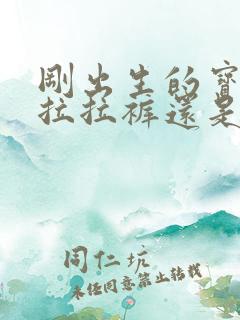 剛出生的寶
拉拉褲還是
同仁坑
未经同意禁止转载